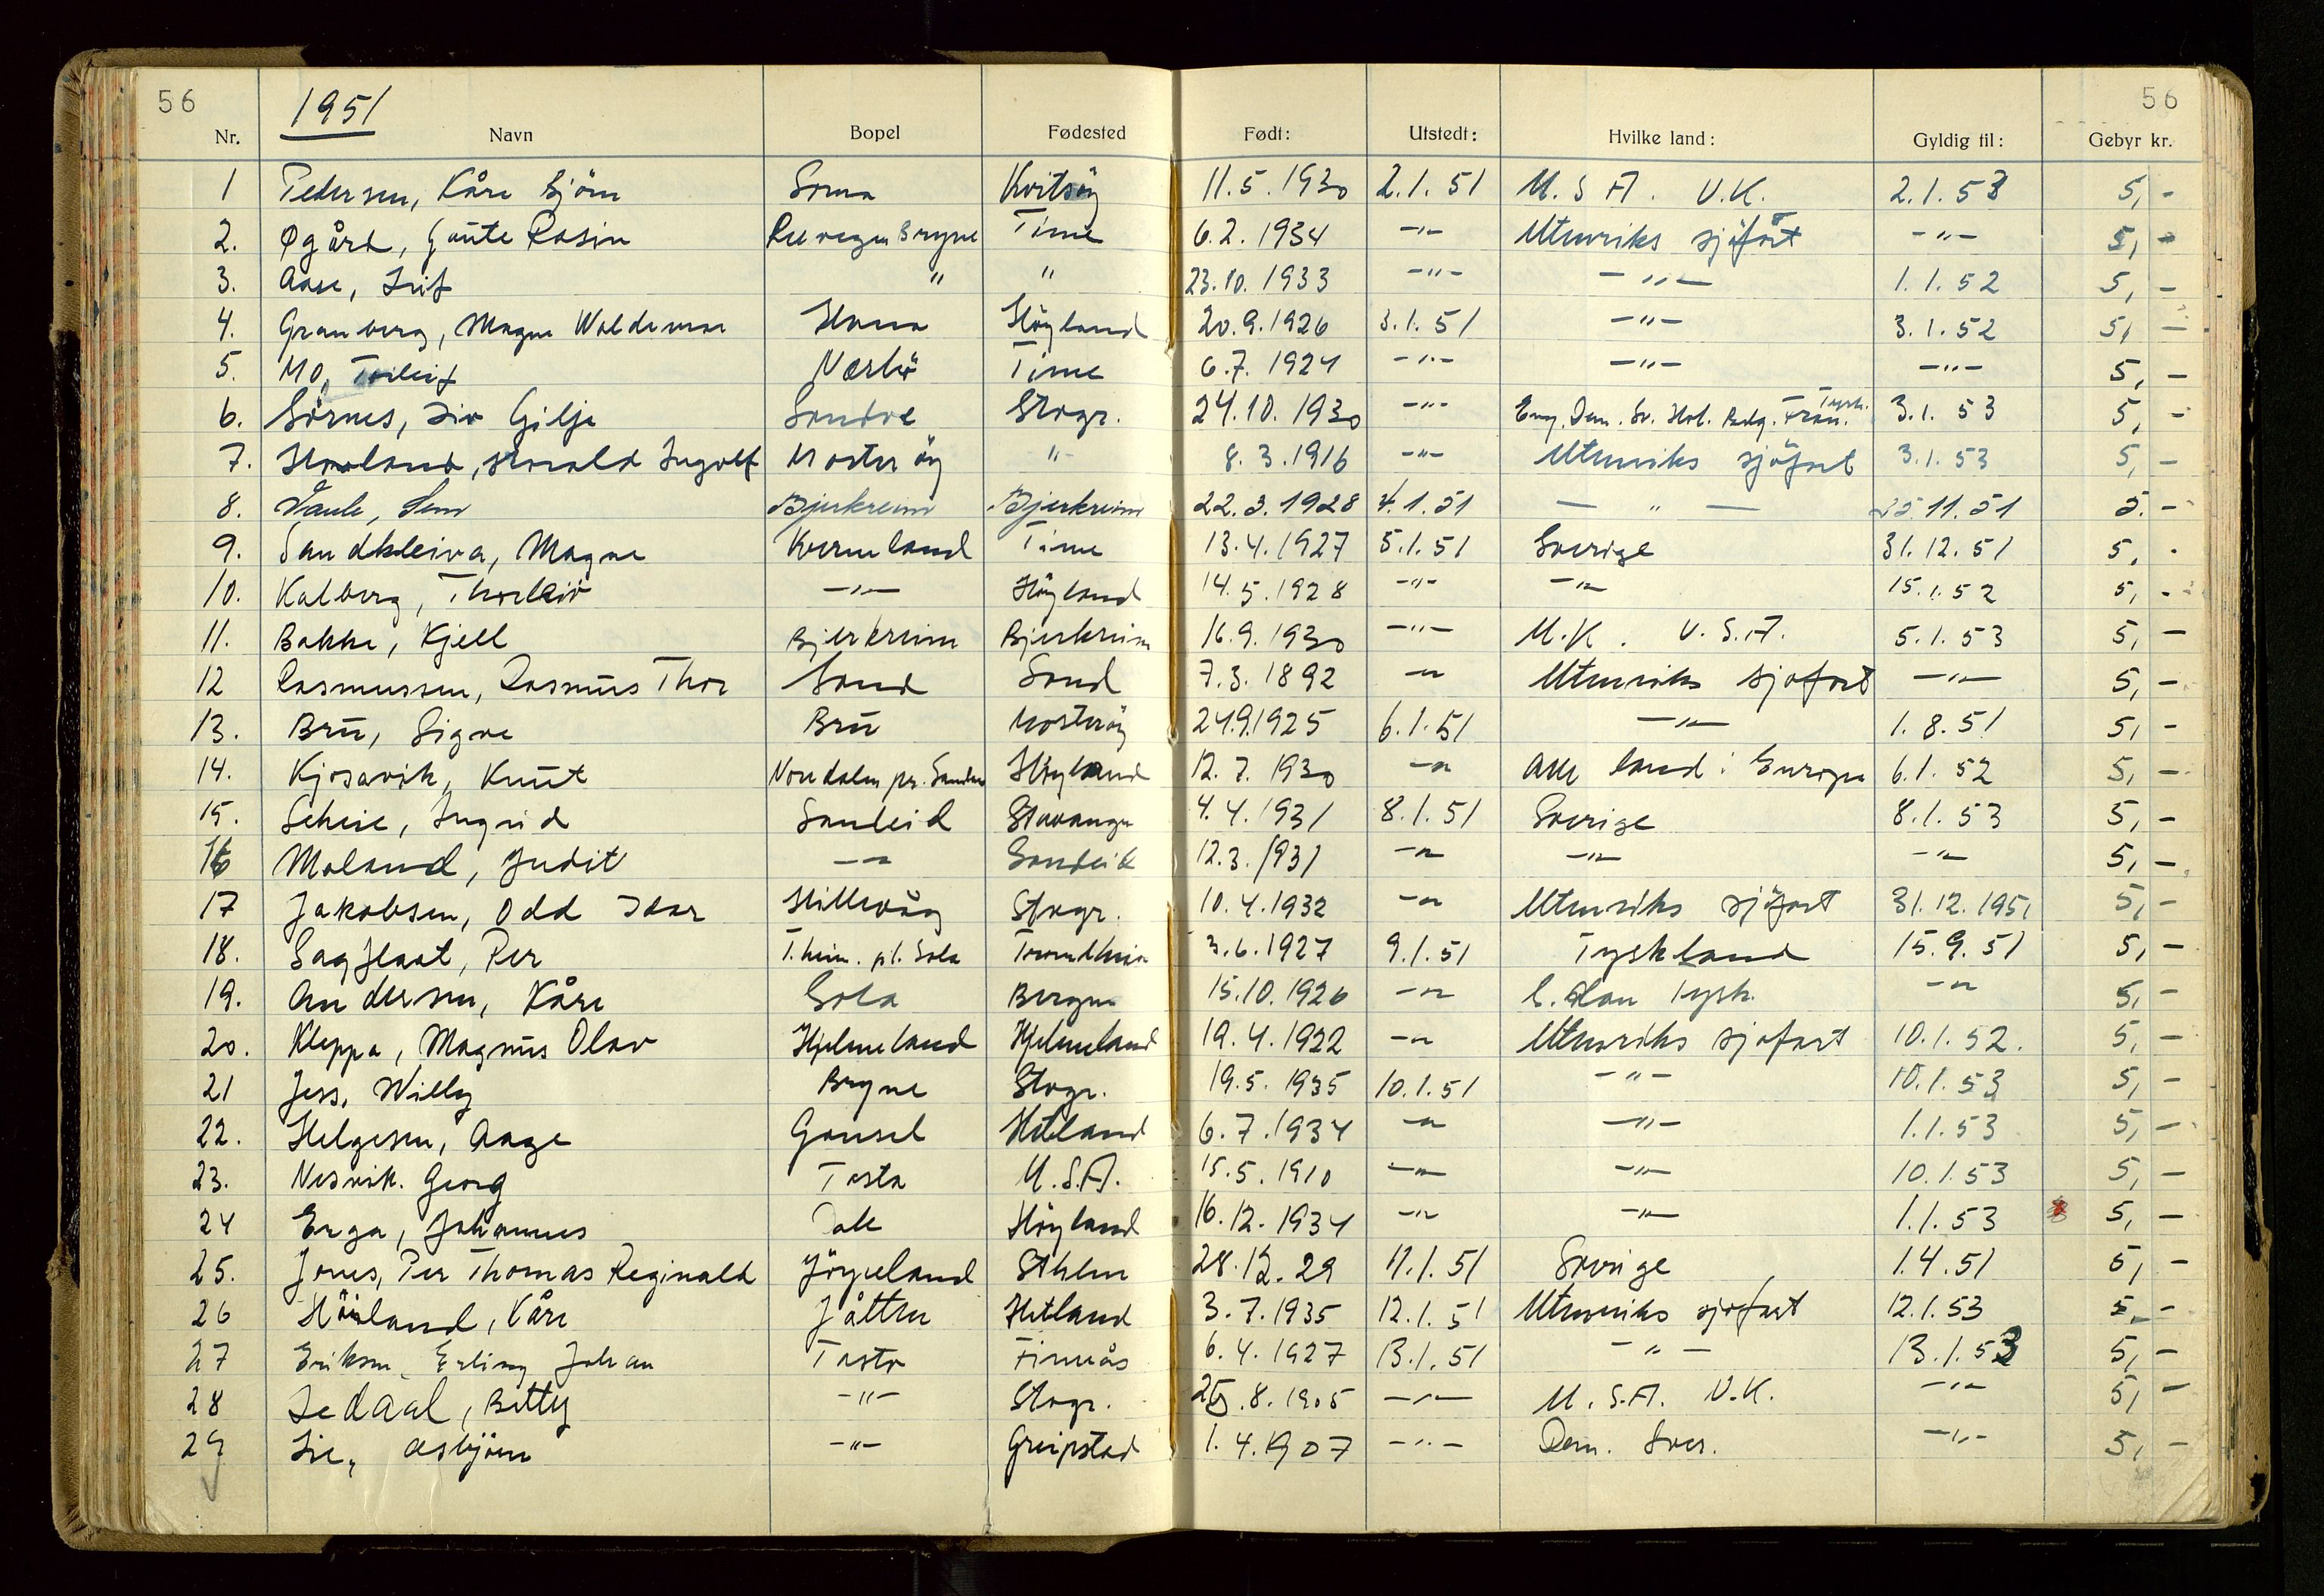 56 1951 56
Nr. Navn Bopel Fødested Født: Utstedt: Hvilke land: Gyldig til: Gebyr kr.
1 Pedersen, Kåre Björn Soma Kvitsöy 11.5.1930 2.1.51 U.S.A. U.K. 2.1.53 5,-
2. Øgård, Gaute Rasin Reevegen Bryne Time 6.2.1934 -"- Utenriks sjöfart -"- 5,-
3. Aase, Leif " " 23.10.1933 -"- -"- 1.1.52 5,-
4. Granberg, Magne Waldemar Hana Höyland 20.9.1926 3.1.51 -"- 3.1.52 5,-
5. Mo, Torleif Nærbö Time 6.7.1924 -"- -"- -"- 5,-
6. Sörnes, Siv Gilje Sandve Stvgr. 24.10.1930 -"- Eng. Dan. Sv. Hol. Belg. Fran. Tysk. 3.1.53 5,-
7. Harald Ingolf Mosteröy " 8.3.1916 -"- Utenriks sjöfart 3.1.53 5,-
8. Bjerkreim Bjerkreim 22.3.1928 4.1.51 - " - 11.51 5.-
9. Sandkleiva, Magne Kvernland Time 13.4.1927 5.1.51 Sverige 31.12.51 5,-
10. Kalberg, Thorleiv -"- Höyland 14.5.1928 -"- -"- 15.1.52 5,-
11. Bakke, Kjell Bjerkreim Bjerkreim 16.9.1930 -"- U.K. U.S.A. 5.1.53 5,-
12 Rasmussen, Rasmus Thor Sand Sand 7.3.1892 -"- Utenriks sjøfart -"- 5,-
13. Bru, Signe Bru Mosteröy 24.9.1925 6.1.51 -"- 1.8.51 5,-
14. Kjosavik, Knut Noredalen pr. Sandnes Höyland 12.7.1930 -"- Alle land i Europa 6.1.52 5,-
15. Scheie, Ingrid Sandeid Stavanger 4.4.1931 8.1.51 Sverige 8.1.53 5,-
16 Moland, Judit -"- Sandeid 12.3.1931 -"- -"- -"- 5,-
17 Jakobsen, Odd Ivar Hillevåg Stvgr. 10.4.1932 -"- Utenriks sjöfart 31.12.1951 5,-
18. Sagflaat, Per T.heim. pt. Sola Trondheim 3.6.1927 9.1.51 Tyskland 15.9.51 5,-
19. Andersen, Kåre Sola Bergen 15.10.1926 -"- Tysk. -"- 5,-
20. Kleppa, Magnus Olav Hjelmeland Hjelmeland 19.4.1922 -"- Utenriks sjøfart 10.1.52. 5,-
21 Jess, Willy Bryne Stvgr. 19.5.1935 10.1.51 -"- 10.1.53 5,-
22. Helgesen, Aage Gausel Hetland 6.7.1934 -"- -"- 1.1.53 5,-
23. Nesvik. Georg Tasta U.S.A. 15.5.1910 -"- -"- 10.1.53 5,-
24 Erga, Johannes Dale Höyland 16.12.1934 -"- -"- 1.1.53 5,-
25. Jones, Per Thomas Reginald Jörpeland Sthlm 28.12.29 11.1.51 Sverige 1.4.51 5,-
26 Höiland, Kåre Jåtten Hetland 3.7.1935 12.1.51 Utenriks sjøfart 12.1.53 5,-
27 Eriksen, Erling Johan Tasta Finnås 6.4.1927 13.1.51 -"- 13.1.53 5,-
28 Sedaal, Betty -"- Stvgr. 25.8.1905 -"- U.S.A. U.K. -"- 5,-
29 Lie, Asbjörn -"- Greipstad 1.4.1907 -"- Dan. Sver. -"- 5,-